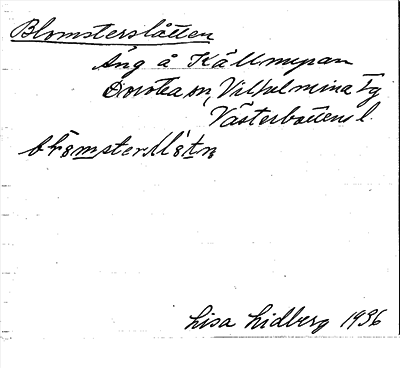 Blomsterslåtten
Äng å Källmyran
Dorotea sn, Vilhelmina Tg
Västerbottens l.
Lisa Lidberg 1936